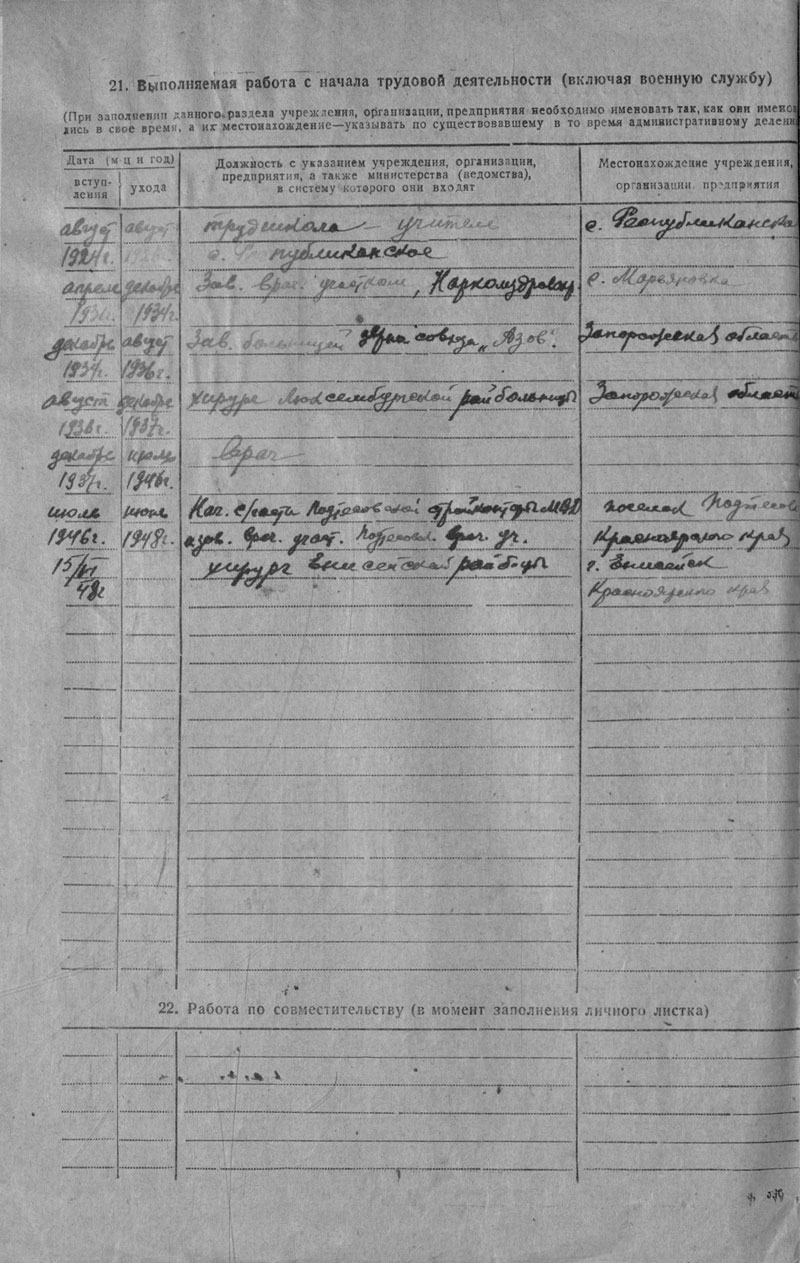 21. Выполняемая работа с начала трудовой деятельности (включая военную службу)
(При заполнении данного раздела учреждения, организации, предприятия необходимо именовать так, как они именова
лись в свое время, а их местонахождение—указывать по существовавшему в то время административному делени
Дата (м-ц и год)
вступ-
ления
ухода
Должность с указанием учреждения, организации,
предприятия, а также министерства (ведомства),
в систему которого они входят
Местонахождение учреждения,
организации, предприятия
август август трудшкола учитель с. Республиканска
1924г. публиканское
апрель декабрь Зав. врач. участком, Наркомздрава с. Марьяновка
1934г.
декабрь август Зав. больницей совхоза „Азов". Запорожская област
1934г. 1936г.
август декабрь хирург Люксембургской райбольницы Запорожская област
1936г. 1937г.
декабрь июль Врач
1937г. 1946г.
июль июнь Нач. с/части Подтесовской МВД поселок Подтесов
1946г. 1948г. врач. участ. Подтесовск. врач. уч. Красноярского края
15/VI хирург Енисейской райб-цы г. Енисейск
48г Красноярского края
22. Работа по совместительству (в момент заполнения личного листка)